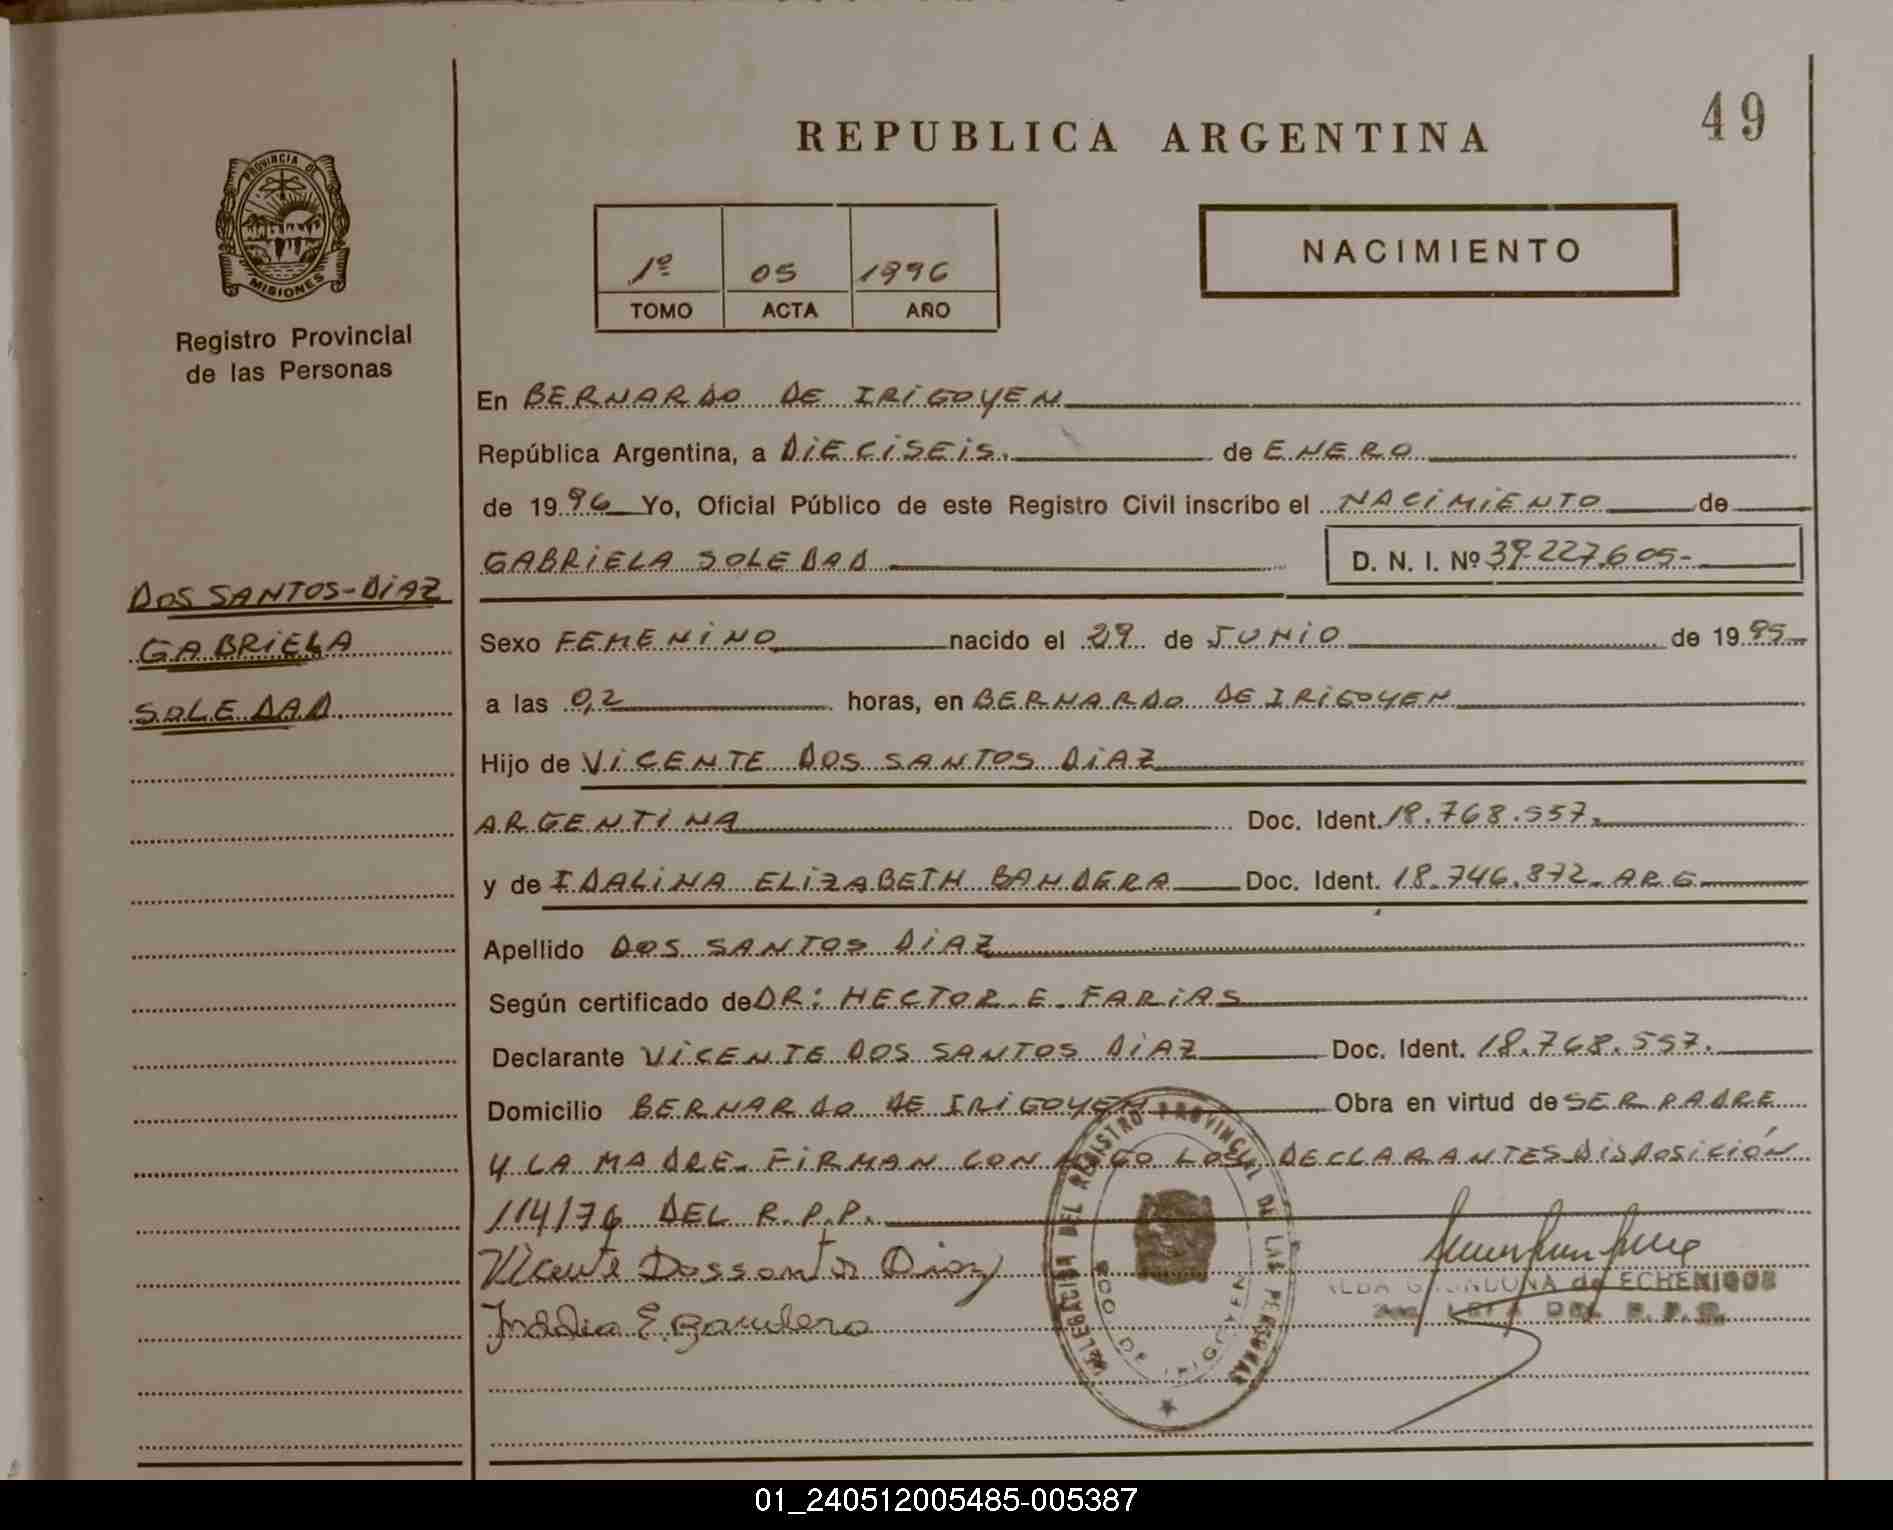 49
REPUBLICA ARGENTINA
PROVINCIA DE
MISIONES
Registro Provincial
de las Personas
1º 05 1996
TOMO ACTA AÑO
NACIMIENTO
En BERNARDO DE IRIGOYEN
República Argentina, a DIECISEIS. de ENERO
de 1996 Yo, Oficial Público de este Registro Civil inscribo el NACIMIENTO de
GABRIELA SOLEDAD D. N. I. Nº 39.227.605-
DOS SANTOS-DIAZ
GABRIELA
SOLEDAD
Sexo FEMENINO nacido el 29 de JUNIO de 1995
a las 0,2 horas, en BERNARDO DE IRIGOYEN
Hijo de VICENTE DOS SANTOS DIAZ
ARGENTINA Doc. Ident. 18.768.557.
y de IDALINA ELIZABETH BANDERA Doc. Ident. 18.746.872. ARG
Apellido DOS SANTOS DIAZ
Según certificado de DR: HECTOR E. FARIAS
Declarante VICENTE DOS SANTOS DIAZ Doc. Ident. 18.768.557.
Domicilio BERNARDO DE IRIGOYEN Obra en virtud de SER PADRE
Y LA MADRE. FIRMAN CONMIGO LOS DECLARANTES DISPOSICIÓN
114/76 DEL R.P.P.
Vicente Dossantos Diaz
E. Bandera
DELEGACIÓN DEL REGISTRO PROVINCIAL DE LAS PERSONAS
BDO. DE IRIGOYEN
de ECHENIQUE
DEL R.P.P.
01_240512005485-005387